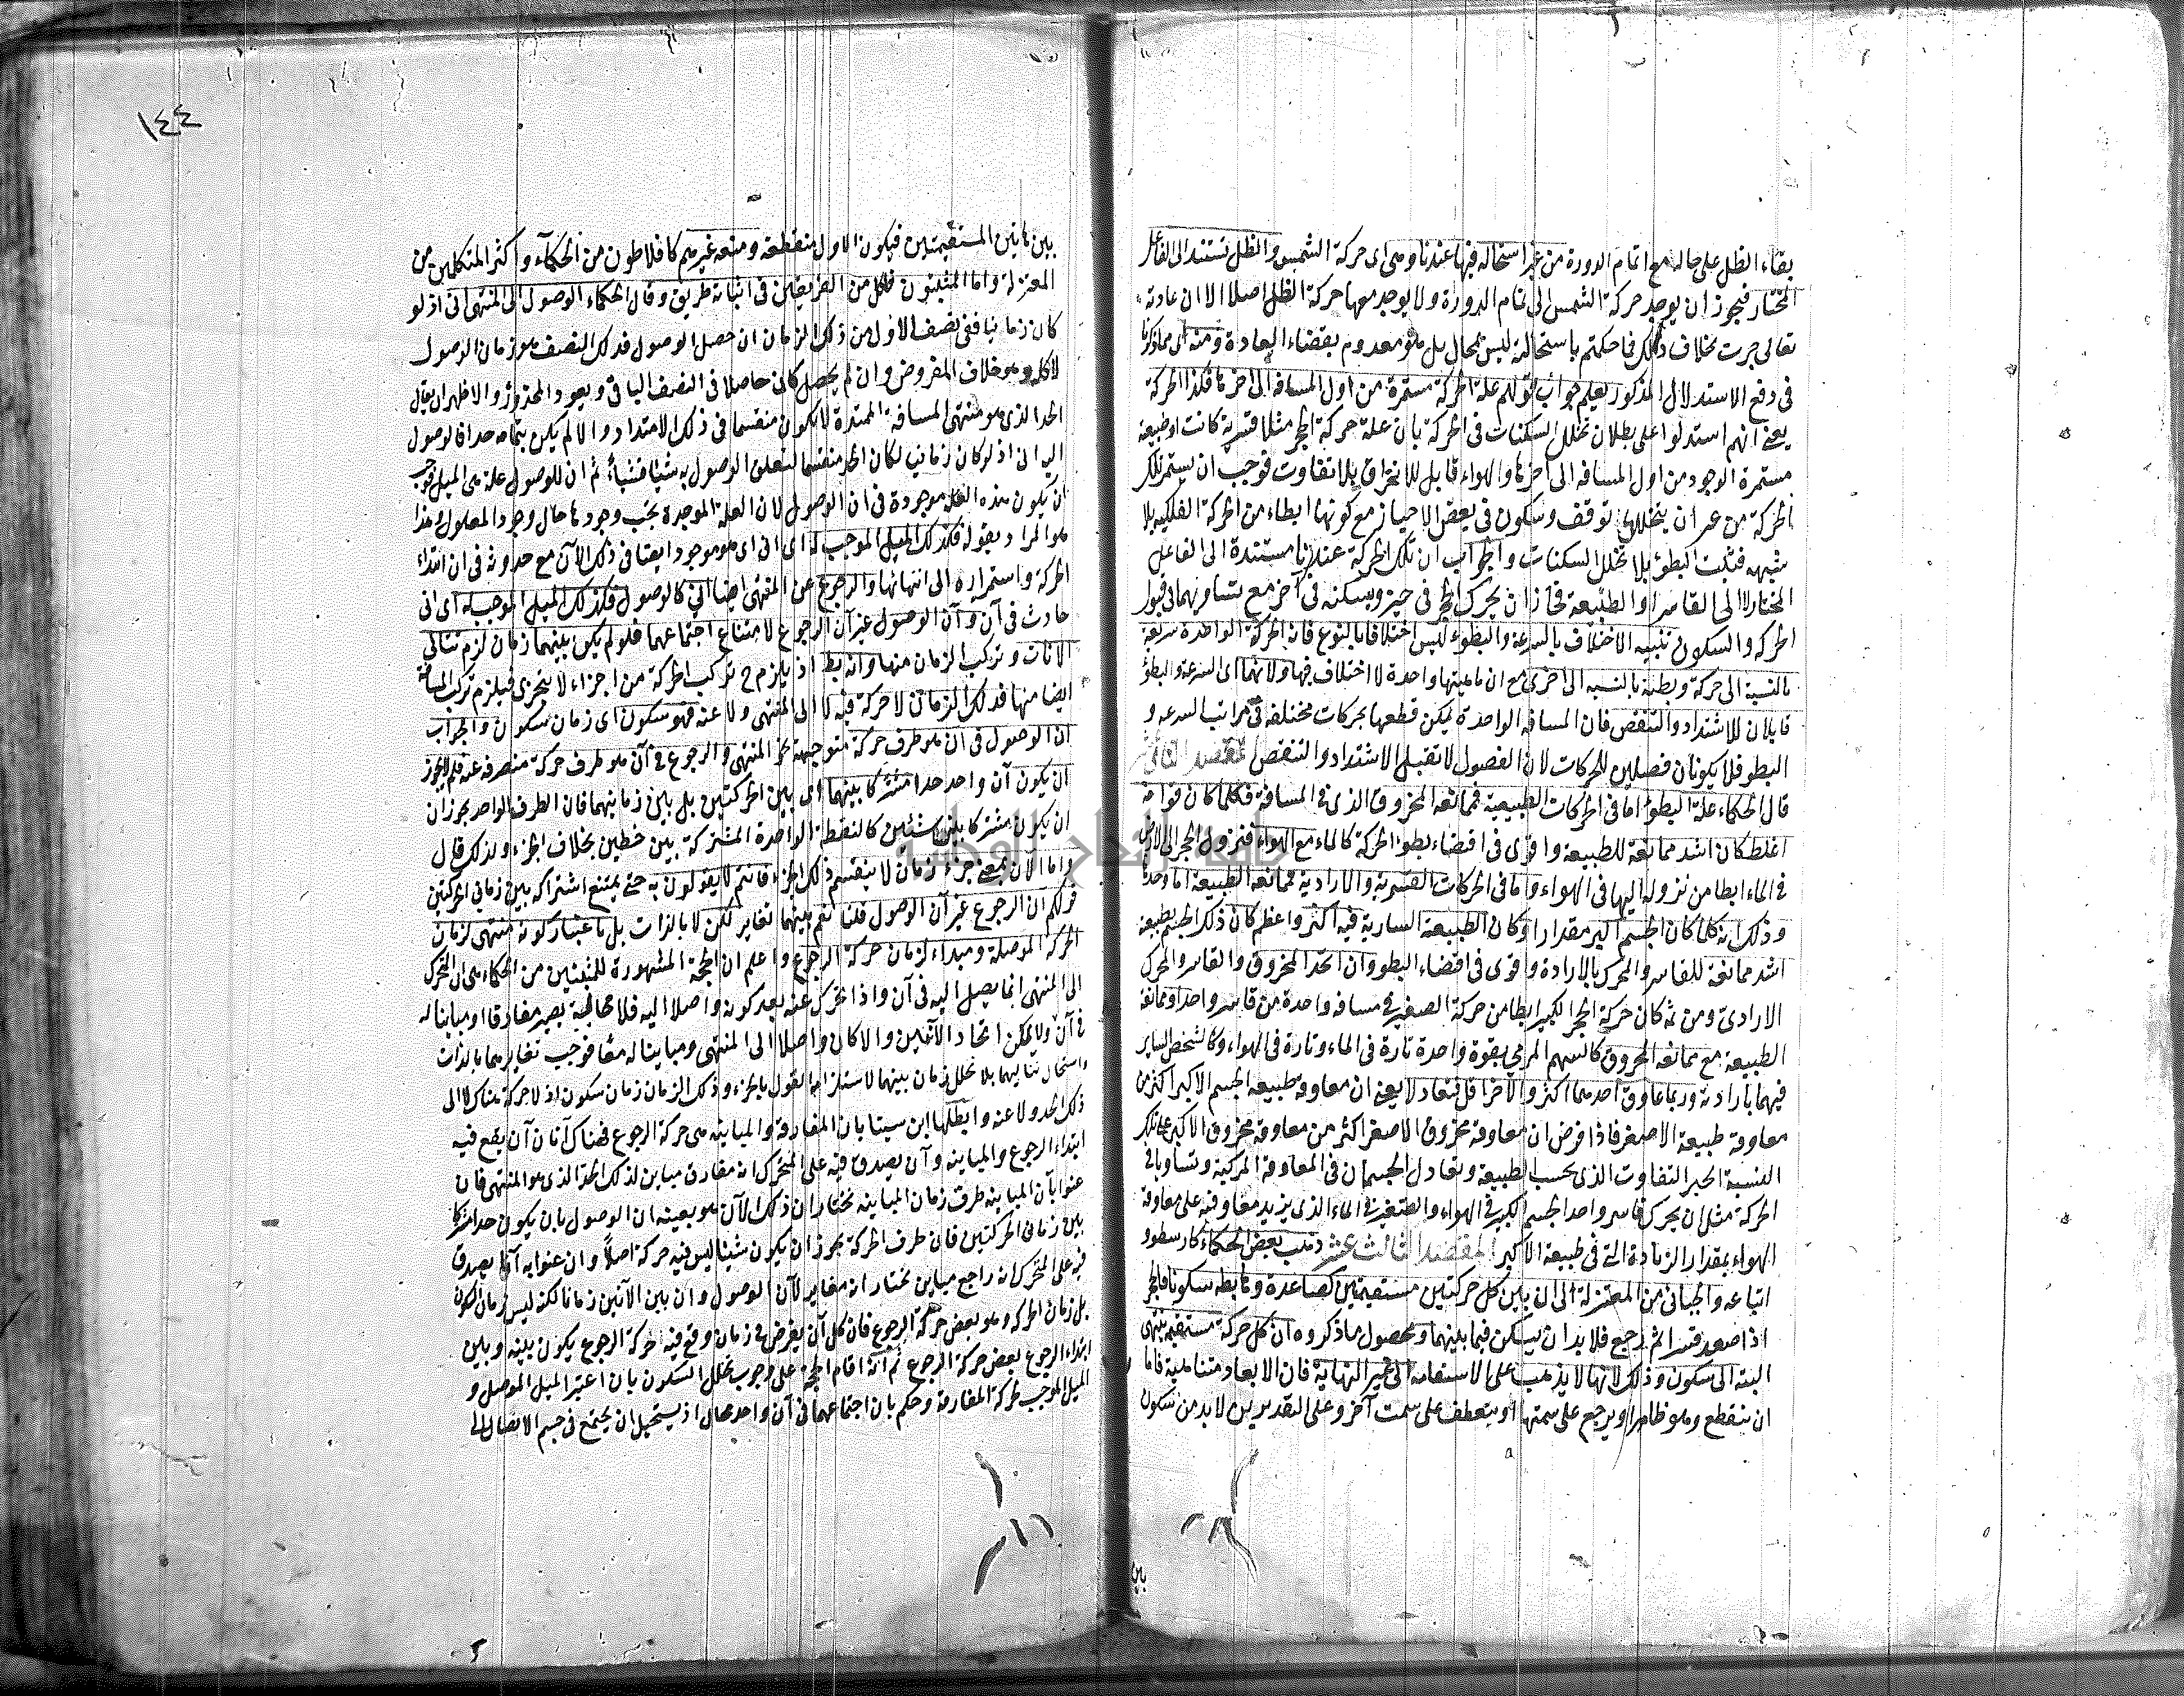 بقاء الظل على حاله مع اتمام الدورة من غير استحالة فيها عندنا وهى اى حركة الشمس والظل تستند الى الفاعل
المختار فيجوز ان يوجد حركة الشمس الى تمام الدورة ولا يوجد معها حركة الظل اصلا الا ان عادته
تعالى جرت بخلاف ذلك فما حكمتم باستحالته ليس بمحال بل هو معدوم بقضاء العادة ومنه اى مما ذكرنا
فى دفع الاستدلال المذكور يعلم جواب قولهم علة الحركة مستمرة من اول المسافة الى آخرها فكذا الحركة
يعنى انهم استدلوا على بطلان تخلل السكنات فى الحركة بان علة حركة الحجر مثلا قسرية كانت او طبيعية
مستمرة الوجود من اول المسافة الى آخرها والهواء قابل للانخراق بلا تفاوت فوجب ان يستمر تلك
الحركة من غير ان يتخللها توقف وسكون فى بعض الاحياز مع كونها ابطاء من الحركة الفلكية بلا
شبهة فثبت البطؤ بلا تخلل السكنات والجواب ان تلك الحركة عندنا مستندة الى الفاعل
المختار لا الى القاسر او الطبيعة فجاز ان يحرك الحجر فى حيز ويسكنه فى آخر مع تساويهما فى قبول
الحركة والسكون تنبيه الاختلاف بالسرعة والبطوء ليس اختلافا بالنوع فانه الحركة الواحدة سريعة
بالنسبة الى حركة وبطيئة بالنسبة الى اخرى مع ان ماهيتها واحدة لا اختلاف فيها ولانهما اى السرعة والبطؤ
قابلان للاشتداد والتنقص فان المسافة الواحدة يمكن قطعها بحركات مختلفة فى مراتب السرعة و
البطو فلا يكونان فصلين للحركات لان الفصول لا تقبل الاشتداد والتنقص المقصد الثانى عشر
قال الحكماء علة البطؤ اما فى الحركات الطبيعية فممانعة المخروق الذى فى المسافة فكلما كان قوامه
اغلظ كان اشد ممانعة للطبيعة واقوى فى اقتضاء بطؤ الحركة كالماء مع الهواء فنزول الحجر الى الارض
فى الماء ابطا من نزوله اليها فى الهواء واما فى الحركات القسرية والارادية فممانعة الطبيعة اما وحدها
وذلك انه كلما كان الجسم اكبر مقدارا وكان الطبيعة السارية فيه اكثر واعظم كان ذلك الجسم بطبيعته
اشد ممانعة للقاسر والمحرك بالارادة واقوى فى اقتضاء البطو وان اتحد المخروق والقاسر والمحرك
الارادى ومن ثمه كان حركة الحجر الكبير ابطا من حركة الصغير فى مسافة واحدة من قاسر واحد او ممانعة
الطبيعة مع ممانعة المخروق كالسهم المرمى بقوة واحدة تارة فى الماء وتارة فى الهواء وكالشخص الساير
فيهما بارادته وربما عاوق احدهما اكثر والآخر اقل فتعادلا يعنى ان معاوقة طبيعة الجسم الاكبر اكثر من
معاوقة طبيعة الاصغر فاذا فرض ان معاوقة مخروق الاصغر اكثر من معاوقة مخروق الاكبر على تلك
النسبة انجبر التفاوت الذى بحسب الطبيعة وتعادل الجسمان فى المعاوقة المركبة وتساويا فى
الحركة مثل ان يحرك قاسر واحد الجسم الكبير فى الهواء والصغير فى الماء الذى يزيد معاوقته على معاوقة
الهواء بمقدار الزيادة التى فى طبيعة الاكبر المقصد الثالث عشر ذهب بعض الحكماء كارسطو و
اتباعه والجبائى من المعتزلة الى ان بين كل حركتين مستقيمتين كصاعدة وهابطة سكونا فالحجر
اذا صعد قسرا ثم رجع فلا بد ان يسكن فيما بينهما ومحصول ما ذكروه ان كل حركة مستقيمة ينتهى
البته الى سكون وذلك لانها لا يذهب على الاستقامة الى غير النهاية فان الابعاد متناهية فاما
ان ينقطع وهو ظاهر او يرجع على سمتها او ينعطف على سمت آخر وعلى التقديرين لا بد من سكون
بين
١٤٤
بين هاتين المستقيمتين فيكون الاول منقطعة ومنعه غيرهم كافلاطون من الحكماء واكثر المتكلمين من
المعتزلة واما المثبتون فلكل من الفريقين فى اثباته طريق وقال الحكماء الوصول الى المنتهى آنى اذ لو
كان زمانيا ففى نصف الاول من ذلك الزمان ان حصل الوصول فذلك النصف هو زمان الوصول
لا كله وهو خلاف المفروض وان لم يحصل كان حاصلا فى النصف الباقى ويعود المحذور والاظهر ان يقال
الحد الذى هو منتهى المسافة الممتدة لا يكون منقسما فى ذلك الامتداد والا لم يكن بتمامه حدا فالوصول
اليه آنى اذ لو كان زمانيا لكان الحد منقسما لتعلق الوصول به شيئا فشيئا ثم ان للوصول علة هى الميل فوجب
ان يكون هذه العلة موجودة فى آن الوصول لان العلة الموجدة يجب وجودها حال وجود المعلول وهذا
هو المراد بقوله فكذلك الميل الموجب له اى آنى اى هو موجود ايضا فى ذلك الآن مع حدوثه فى آن ابتداء
الحركة واستمراره الى انتهائها والرجوع عن المنتهى ايضا آنى كالوصول فكذلك الميل الموجب له اى آنى
حادث فى آن وآن الوصول غير آن الرجوع لامتناع اجتماعهما فلو لم يكن بينهما زمان لزم تتالى
الآنات وتركب الزمان منها وانه بط اذ يلزم ح تركب الحركة من اجزاء لا يتجزى فيلزم تركب المسافة
ايضا منها فذلك الزمان لا حركة فيه لا الى المنتهى ولا عنه فهو سكون اى زمان سكون والجواب
ان الوصول فى آن هو طرف حركة متوجهة نحو المنتهى والرجوع فى آن هو طرف حركة منصرفة عنه فلم لا يجوز
ان يكون آن واحد حدا مشتركا بينهما اى بين الحركتين بل بين زمانيهما فان الطرف الواحد يجوز ان
ان يكون مشتركا بين شيئين كالنقطة الواحدة المشتركة بين خطين بخلاف الجزء ولذلك قال
واما الآن بمعنى جزء زمان لا ينقسم ذلك الجزء فانتم لا يقولون به حتى يمتنع اشتراكه بين زمانى الحركتين
قولكم آن الرجوع غير آن الوصول قلنا نعم بينهما تغاير لكن لا بالذات بل باعتبار كونه منتهى لزمان
الحركة الموصلة ومبداء لزمان حركة الرجوع واعلم ان الحجة المشهورة للمثبتين من الحكماء هى ان المتحرك
الى المنتهى انما يصل اليه فى آن واذا تحرك عنه بعد كونه واصلا اليه فلا محالة يصير مفارقا او مباينا له
فى آن ولا يمكن اتحاد الآنين والا كان واصلا الى المنتهى ومباينا له معا فوجب تغايرهما بالذات
واستحال تتاليهما بلا تخلل زمان بينهما لاستلزامه القول بالجزء وذلك الزمان زمان سكون اذ لا حركة هناك لا الى
ذلك الحد ولا عنه وابطلها ابن سينا بان المفارقة والمباينة هى حركة الرجوع فهناك آنان آن يقع فيه
ابتداء الرجوع والمباينة وآن يصدق فيه على المتحرك انه مفارق مباين لذلك الحد الذى هو المنتهى فان
عنوا بآن المباينة طرف زمان المباينة نختار ان ذلك الآن هو بعينه آن الوصول بان يكون حدا مشتركا
بين زمانى الحركتين فان طرف الحركة يجوز ان يكون شيئا ليس فيه حركة اصلا وان عنوا به آنا يصدق
فيه على المتحرك انه راجع مباين نختار انه مغاير لآن الوصول وان بين الآنين زمانا لكنه ليس زمان السكون
بل زمان الحركة وهو بعض حركة الرجوع فان كل آن يفرض فى زمان وقع فيه حركة الرجوع يكون بينه وبين
ابتداء الرجوع بعض حركة الرجوع ثم انه اقام الحجة على وجوب تخلل السكون بان اعتبر الميل الموصل و
الميل الموجب لحركة المفارقة وحكم بان اجتماعهما فى آن واحد محال اذ يستحيل ان يجتمع فى جسم الايصال الى